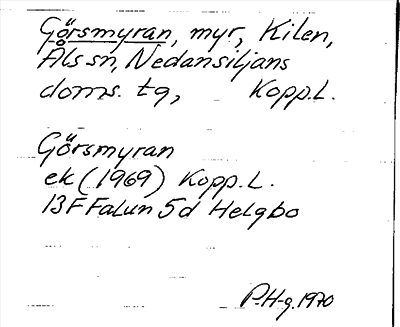 Görsmyran, myr, Kilen,
Åls sn, Nedansiljans
doms. tg, Kopp.L.
Görsmyran
ek (1969) Kopp.L.
13F Falun 5d Helgbo
P.H-g. 1970